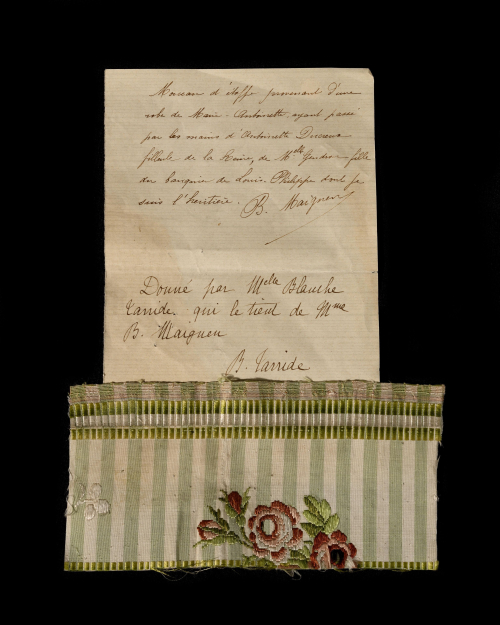 Morceau d'étoffe provenant d'une
robe de Marie-Antoinette ayant passé
par les mains d'Antoinette Ducreux
filleule de la Reine, de Melle Gendron fille
du banquier de Louis Philippe dont je
suis l'héritière. B. Maigueu
Donné par Melle Blanche
Tarride qui le tient de Mme
B. Maigueu
B. Tarride